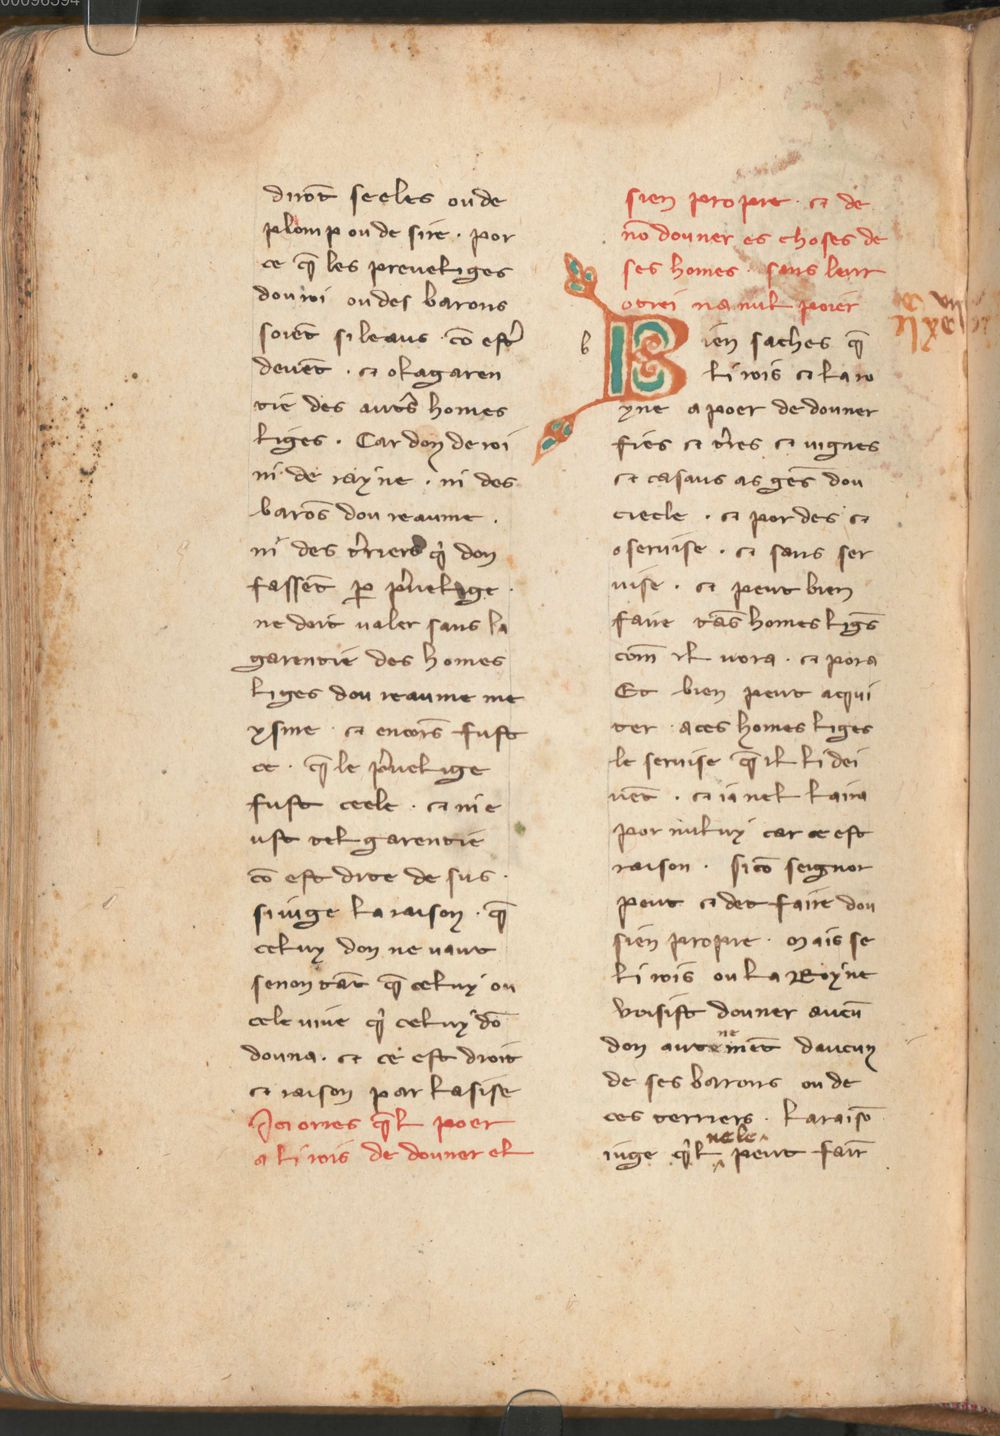 dirōt seeles ou de
plomp ou de sire · por
ce q̄ les preveliges
dou roi ou des barons
soiēt si leaus · cō estr̄
devēt · et okagaren
tie des autrs̄ homes
liges · Car don de roi
ni de rayne · ni des
barōs dou reaume ·
ni des t̄riers q̄ don
fassēt p̱ p̄velige ·
ne doit valer sans la
garentie des homes
liges dou reaume me
ysme · et encors̄ fust
ce · q̄ le p̄velige
fust ceele · et ni e
ust tel garentie
cō est dite de sus ·
si iuge la raison · q̄
celuy don ne vaut
senon tāt q̄ celuy ou
cele vive q̄ celuy dō
douna · et ce est droit
et raison par lasise
Ici orres q̄l poer
a li rois de douner el
sien propre · et de
nō douner es choses de
ses homes · sans leur
otrei na nul poier
b
Bien saches q̄
li rois et la ro
yne a poer de douner
fies et t̄res et vignes
et casaus as gēs dou
ciecle · et por des et
o servise · et sans ser
vise · et peut bien
faire tās homes ligs̄
com̄ il vora · et pora
Et bien peut aqui
ter · a ces homes liges
le servise q̄ il li dei
vēt · et ia nel laira
por nuluy car ce est
raison · si cō seignor
peut et det faire dou
sien propre · Mais se
li rois ou la Royne
voisist douner aucū
don autremēt daucun
ne
de ses barons ou de
ces terriers · la raisō
nele
iuge q̄l peut fair̄